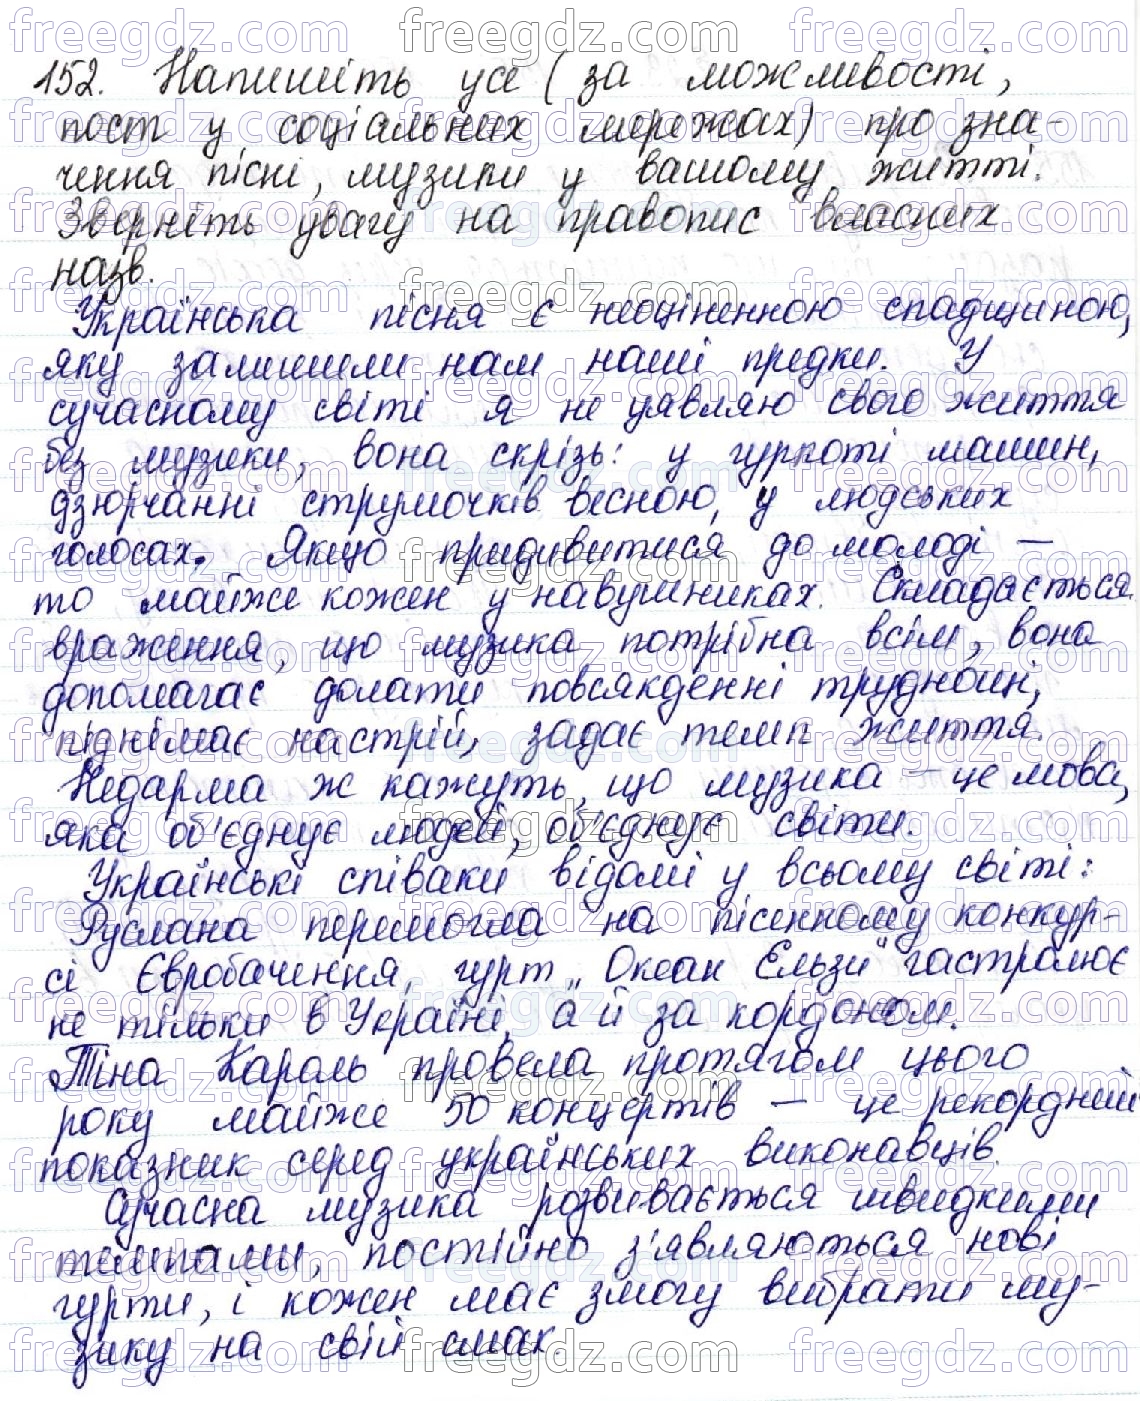 152. Напишіть усе (за можливості,
пост у соціальних мережах) про зна-
чення пісні, музики у вашому житті.
Зверніть увагу на правопис власних
назв.
Українська пісня є неоціненною спадщиною,
яку залишили нам наші предки. У
сучасному світі я не уявляю свого життя
без музики, вона скрізь: у гуркоті машин,
дзюрчанні струмочків весною, у людських
голосах. Якщо придивитися до молоді —
то майже кожен у навушниках. Складається
враження, що музика потрібна всім, вона
допомагає долати повсякденні труднощі,
піднімає настрій, задає темп життя.
Недарма ж кажуть, що музика – це мова,
яка об'єднує людей, об'єднує світи.
Українські співаки відомі у всьому світі:
Руслана перемогла на пісенному конкур-
сі Євробачення, гурт „Океан Ельзи" гастролює
не тільки в Україні, а й за кордоном.
Тіна Кароль провела протягом цього
року майже 50 концертів — це рекордний
показник серед українських виконавців.
Сучасна музика розвивається швидкими
темпами, постійно з'являються нові
гурти, і кожен має змогу вибрати му-
зику на свій смак.
freegdz.com